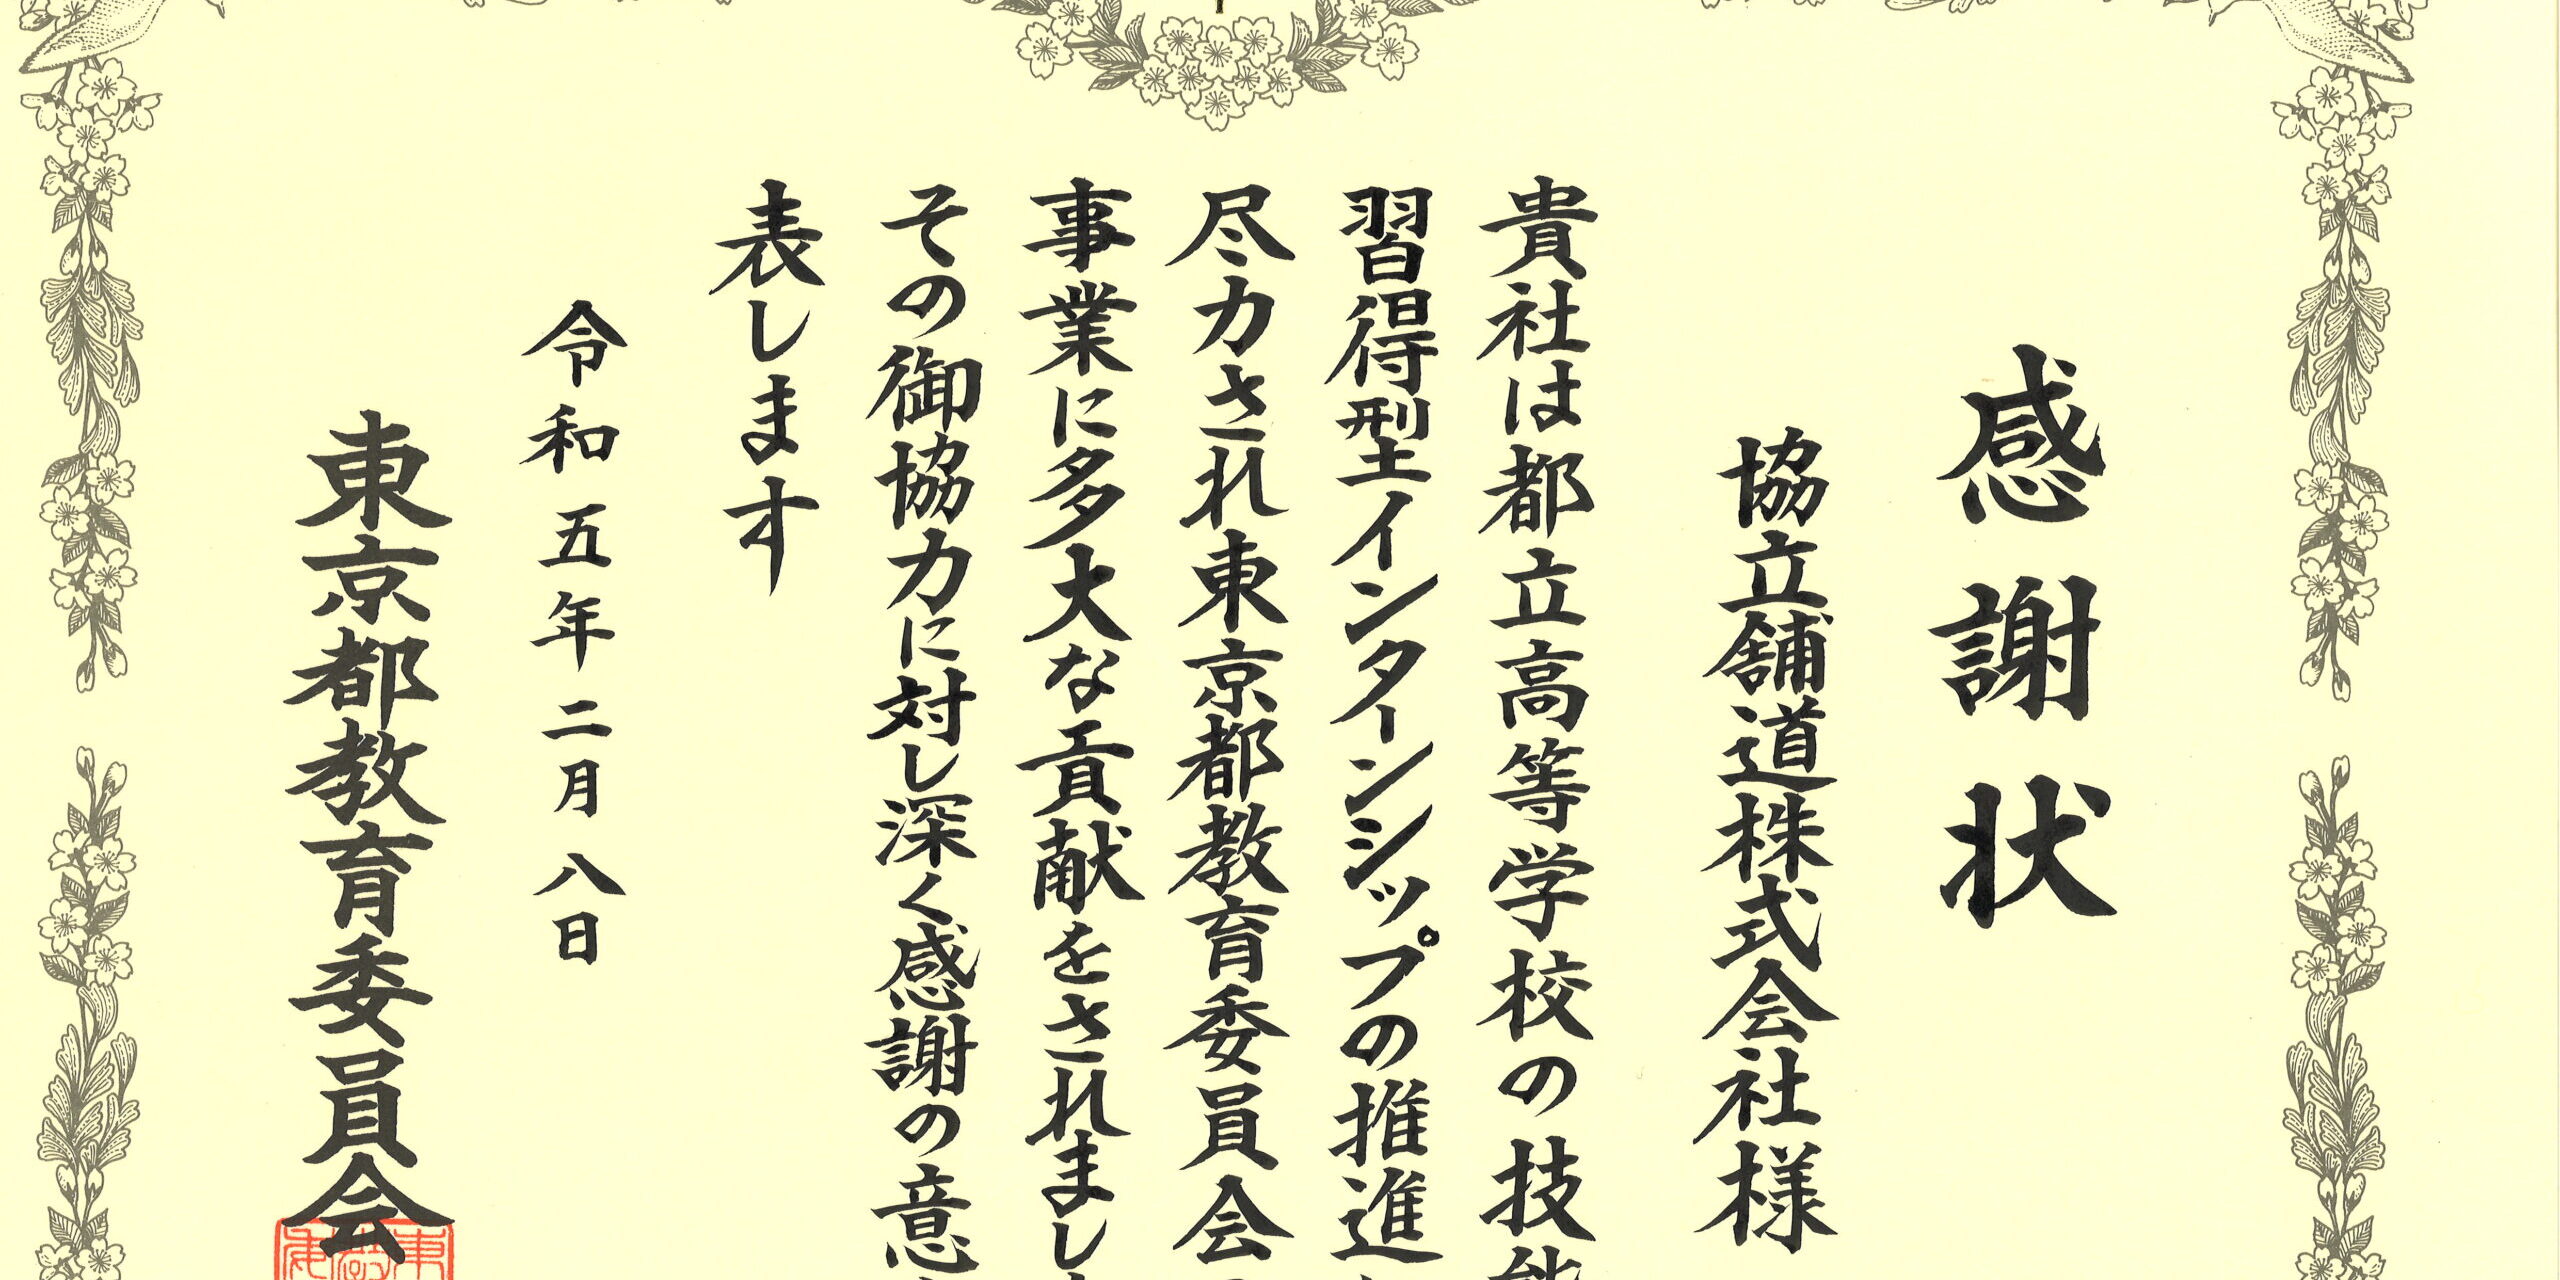 感謝状
協立舗道株式会社様
貴社は都立高等学校の技能
習得型インターンシップの推進
尽力され東京都教育委員会
事業に多大な貢献をされまし
その御協力に対し深く感謝の意
表します
令和五年二月八日
東京都教育委員会